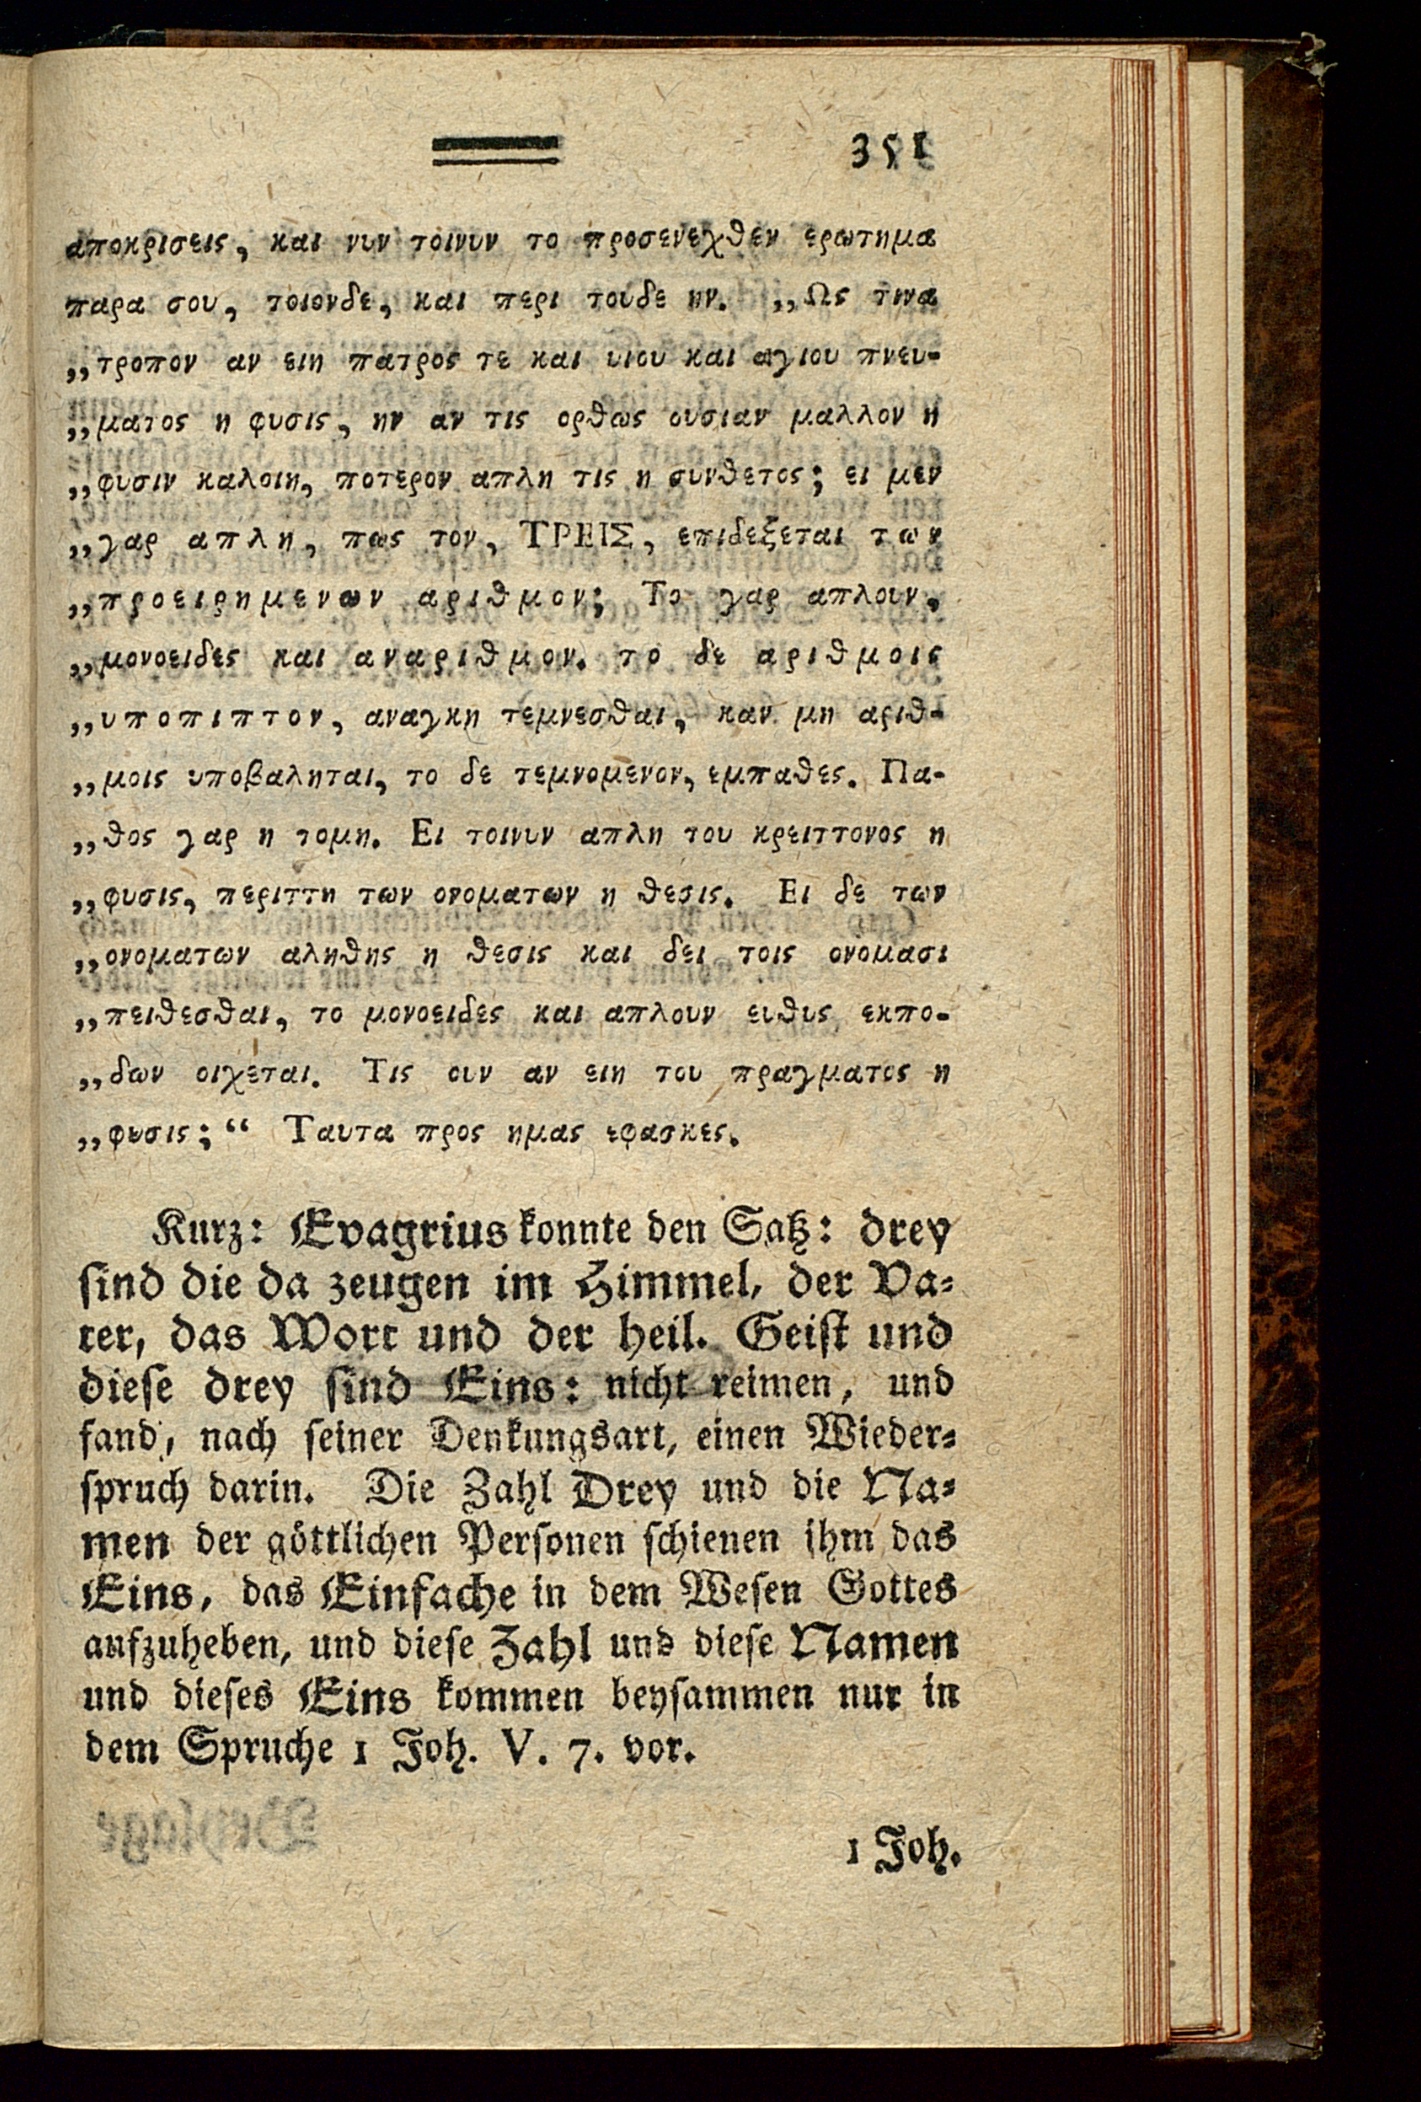 351
αποκρισεις, και νυν τοινυν το προσενεχθεν ερωτημα
παρα σου, τοιονδε, και περι τουδε ην. „Ως τινα
„τροπον αν ειη πατρος τε και υιου και αγιου πνευ-
„ματος η φυσις, ην αν τις ορθως ουσιαν μαλλον η
„φυσιν καλοιη, ποτερον απλη τις η συνθετος; ει μεν
„γαρ απλη, πως τον, ΤΡΕΙΣ, επιδεξεται των
„προειρημενων αριθμον; Το γαρ απλουν,
„μονοειδες και αναριθμον. το δε αριθμοις
„υποπιπτον, αναγκη τεμνεσθαι, καν μη αριθ-
„μοις υποβαληται, το δε τεμνομενον, εμπαθες. Πα-
„θος γαρ η τομη. Ει τοινυν απλη του κρειττονος η
„φυσις, περιττη των ονοματων η θεσις. Ει δε των
„ονοματων αληθης η θεσις και δει τοις ονομασι
„πειθεσθαι, το μονοειδες και απλουν ευθυς εκπο-
„δων οιχεται. Τις ουν αν ειη του πραγματος η
„φυσις;“ Ταυτα προς ημας εφασκες.
Kurz: Evagrius konnte den Satz: drey
sind die da zeugen im Himmel, der Va-
ter, das Wort und der heil. Geist und
diese drey sind Eins: nicht reimen, und
fand, nach seiner Denkungsart, einen Wieder-
spruch darin. Die Zahl Drey und die Na-
men der göttlichen Personen schienen ihm das
Eins, das Einfache in dem Wesen Gottes
aufzuheben, und diese Zahl und diese Namen
und dieses Eins kommen beysammen nur in
dem Spruche 1 Joh. V. 7. vor.
1 Joh.